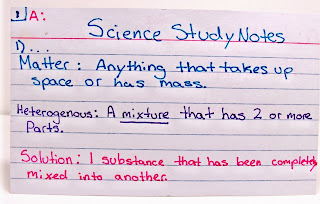 1) A:
Science Study Notes
1)...
Matter: Anything that takes up
space or has mass.
Heterogenous: A mixture that has 2 or more
Parts.
Solution: 1 substance that has been completely
mixed into another.